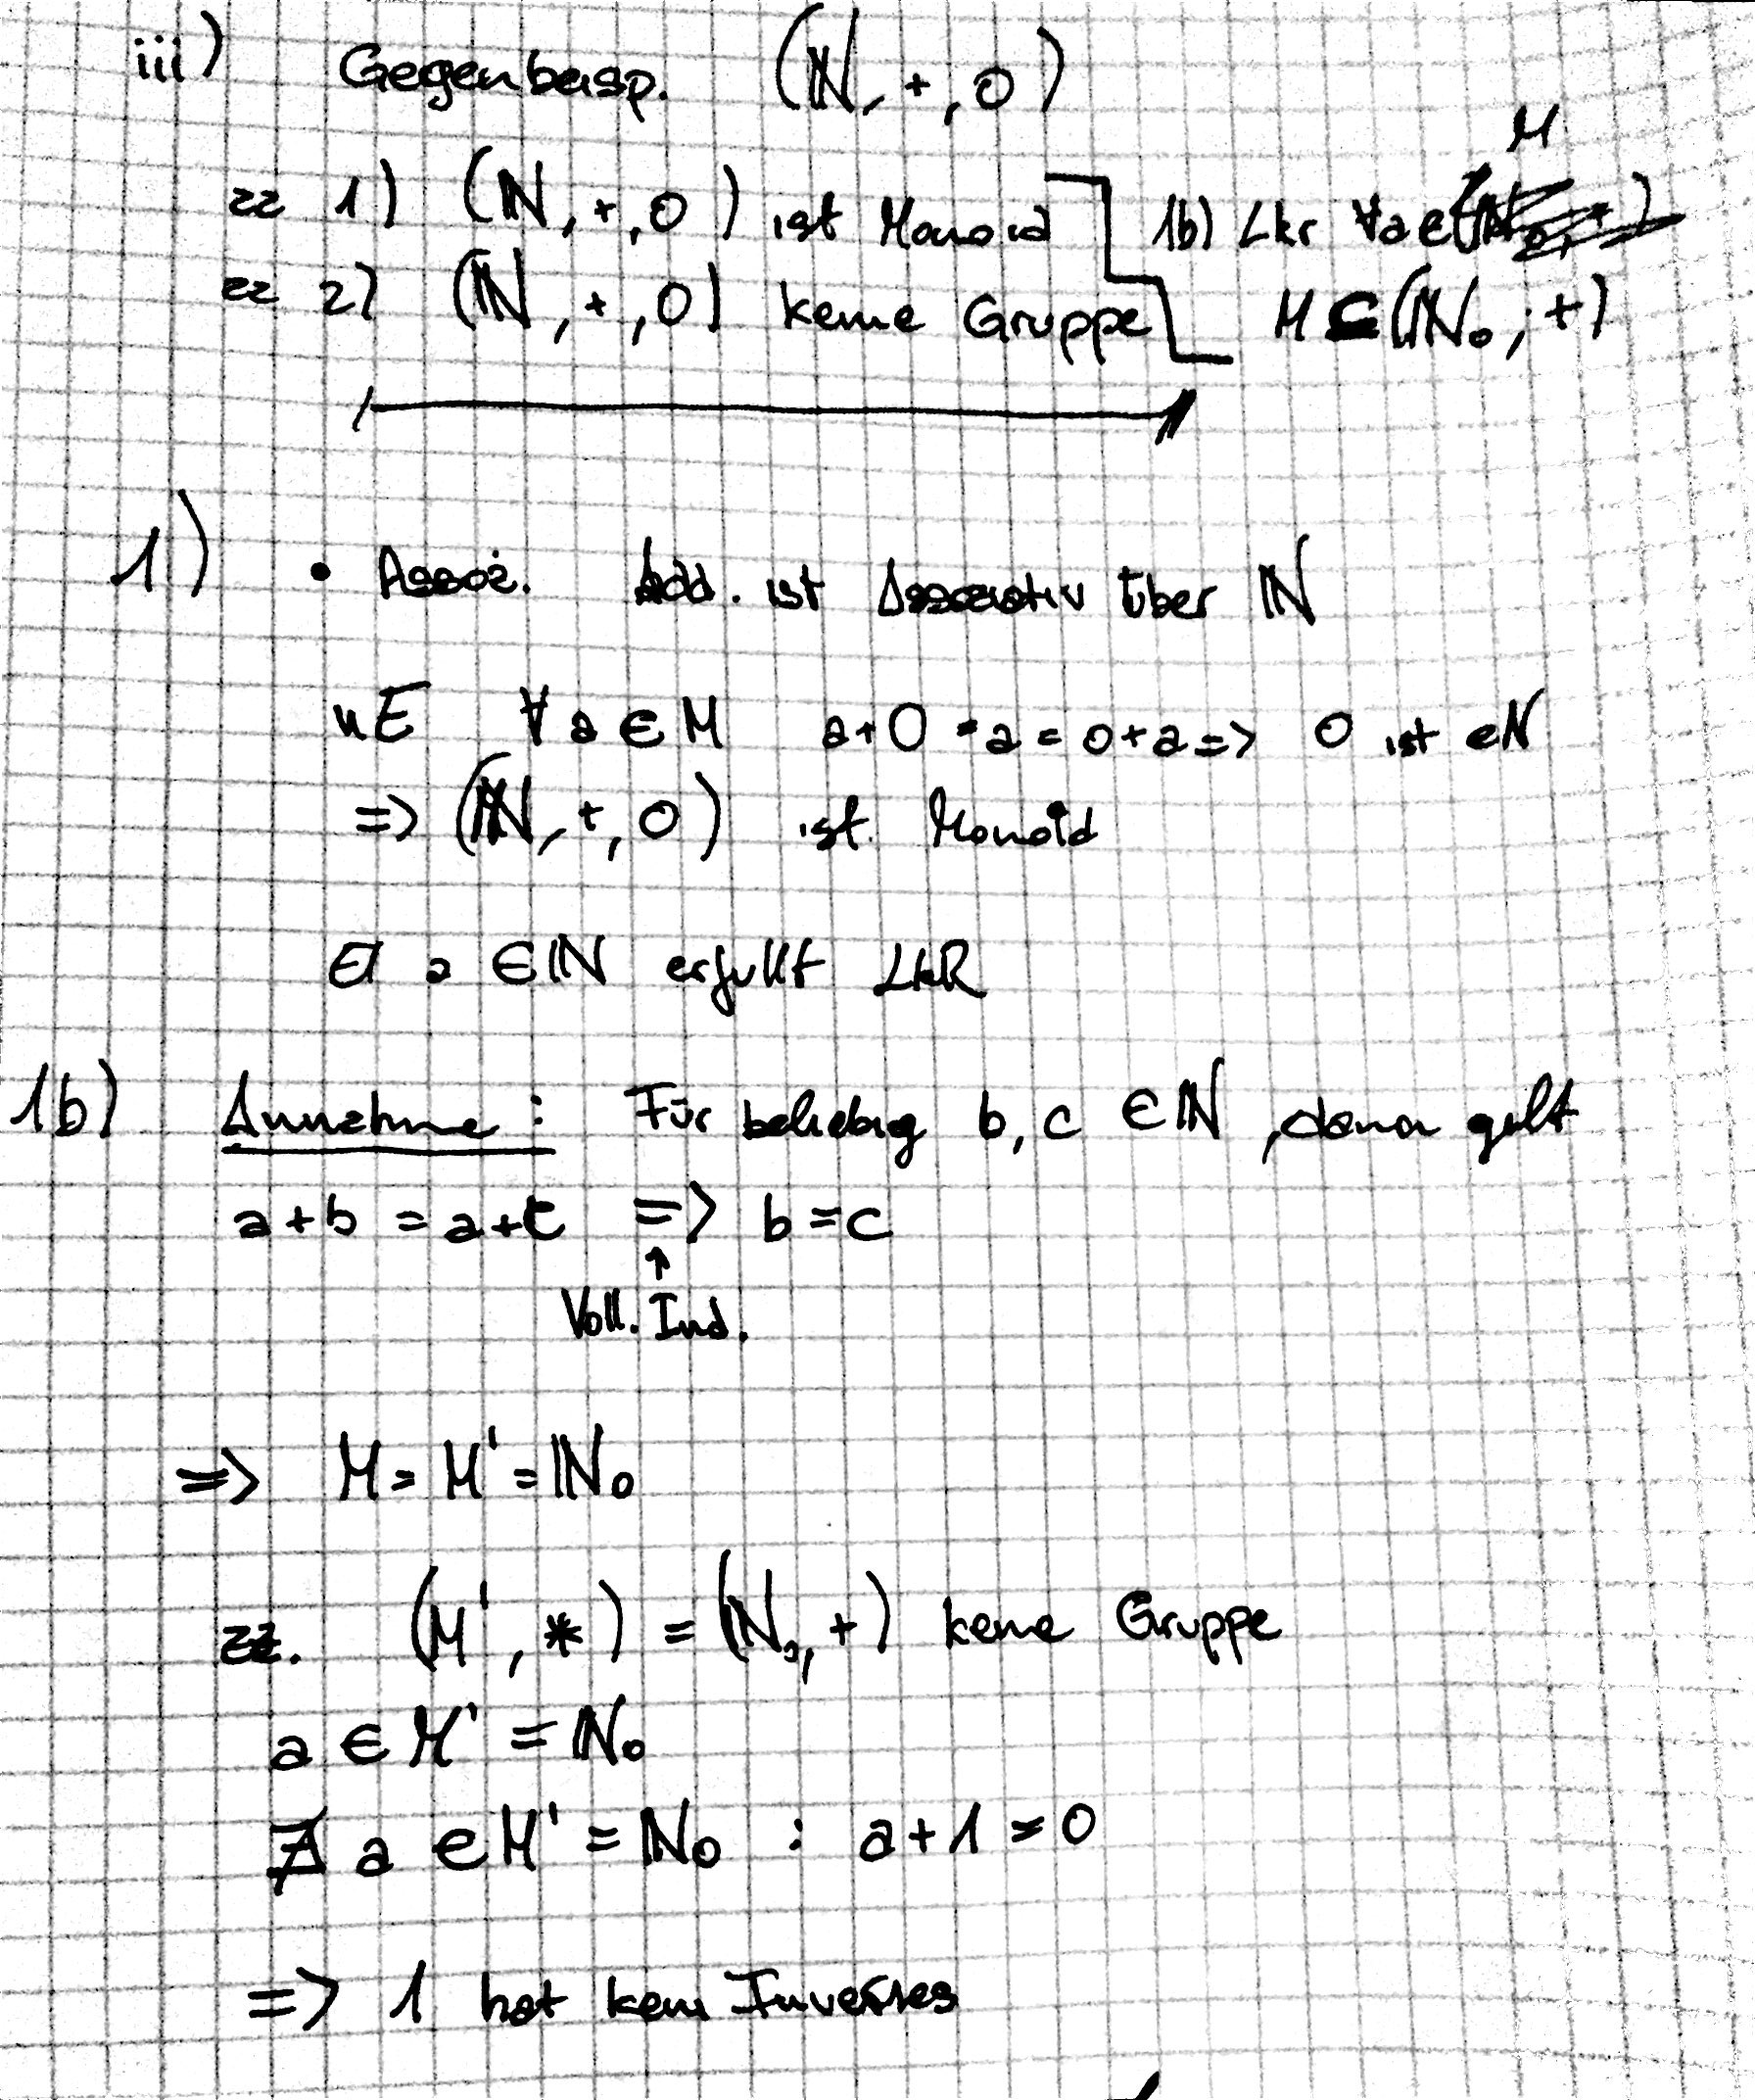 iii) Gegenbeisp. (ℕ, +, 0)
zz 1) (ℕ, +, 0) ist Monoid 1b) Lkr ∀a ∈ M
zz 2) (ℕ, +, 0) keine Gruppe M ⊂ (ℕ₀, +)
1) • Assoz. Add. ist Assoziativ über ℕ
nE ∀ a ∈ M a+0 = a = 0+a => 0 ist eN
=> (ℕ, +, 0) ist Monoid
∃ a ∈ ℕ erfüllt LkR
1b) Annahme: Für beliebig b, c ∈ ℕ, dann gilt
a+b = a+c => b=c
↑
Voll. Ind.
=> M = M' = ℕ₀
zz. (M', *) = (ℕ₀, +) keine Gruppe
a ∈ M' = ℕ₀
∄ a ∈ M' = ℕ₀ : a+1 = 0
=> 1 hat kein Inverses